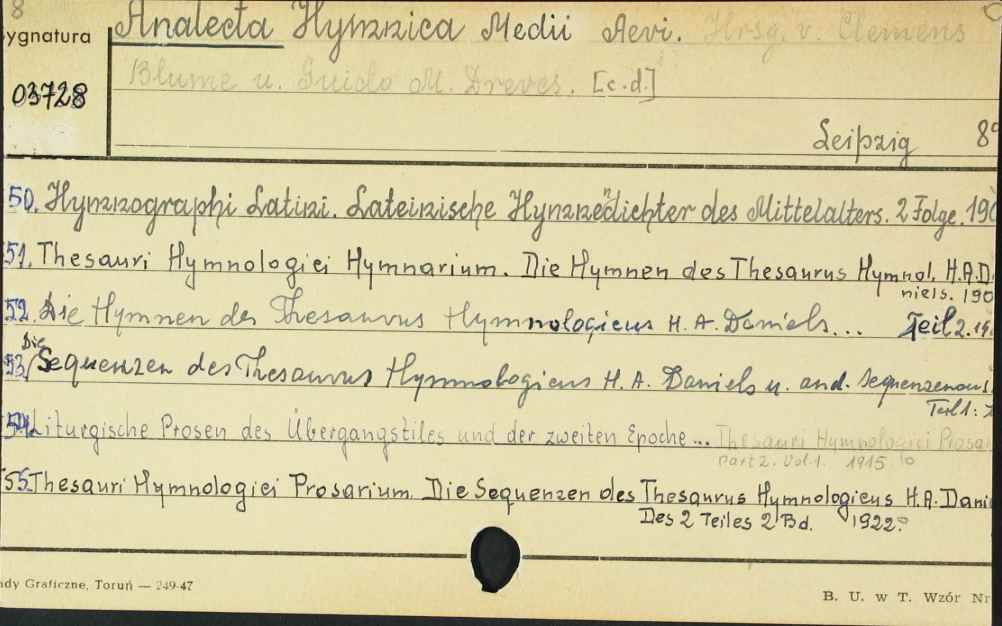 8
ygnatura
Analecta Hymnica Medii Aevi. Hrsg. v. Clemens
03728
Blume u. Guido M. Dreves. [c.d.]
Leipzig 8°
50. Hymnographi Latini. Lateinische Hymnendichter des Mittelalters. 2 Folge. 190
51. Thesauri Hymnologici Hymnarium. Die Hymnen des Thesaurus Hymnol. H.A.D
niels. 190
52. Die Hymnen des Thesaurus Hymnologicus H. A. Daniels... Teil 2. 19
Die
53. Sequenzen des Thesaurus Hymnologicus H. A. Daniels u. and. Sequenzenaus
Teil 1:
54. Liturgische Prosen des Übergangstiles und der zweiten Epoche... Thesauri Hymnologici Prosa
Part 2. Vol. 1. 1915
55. Thesauri Hymnologici Prosarium. Die Sequenzen des Thesaurus Hymnologicus H.A. Dani
Des 2 Teiles 2 Bd. 1922.
ady Graficzne, Toruń — 249-47
B. U. w T. Wzór Nr